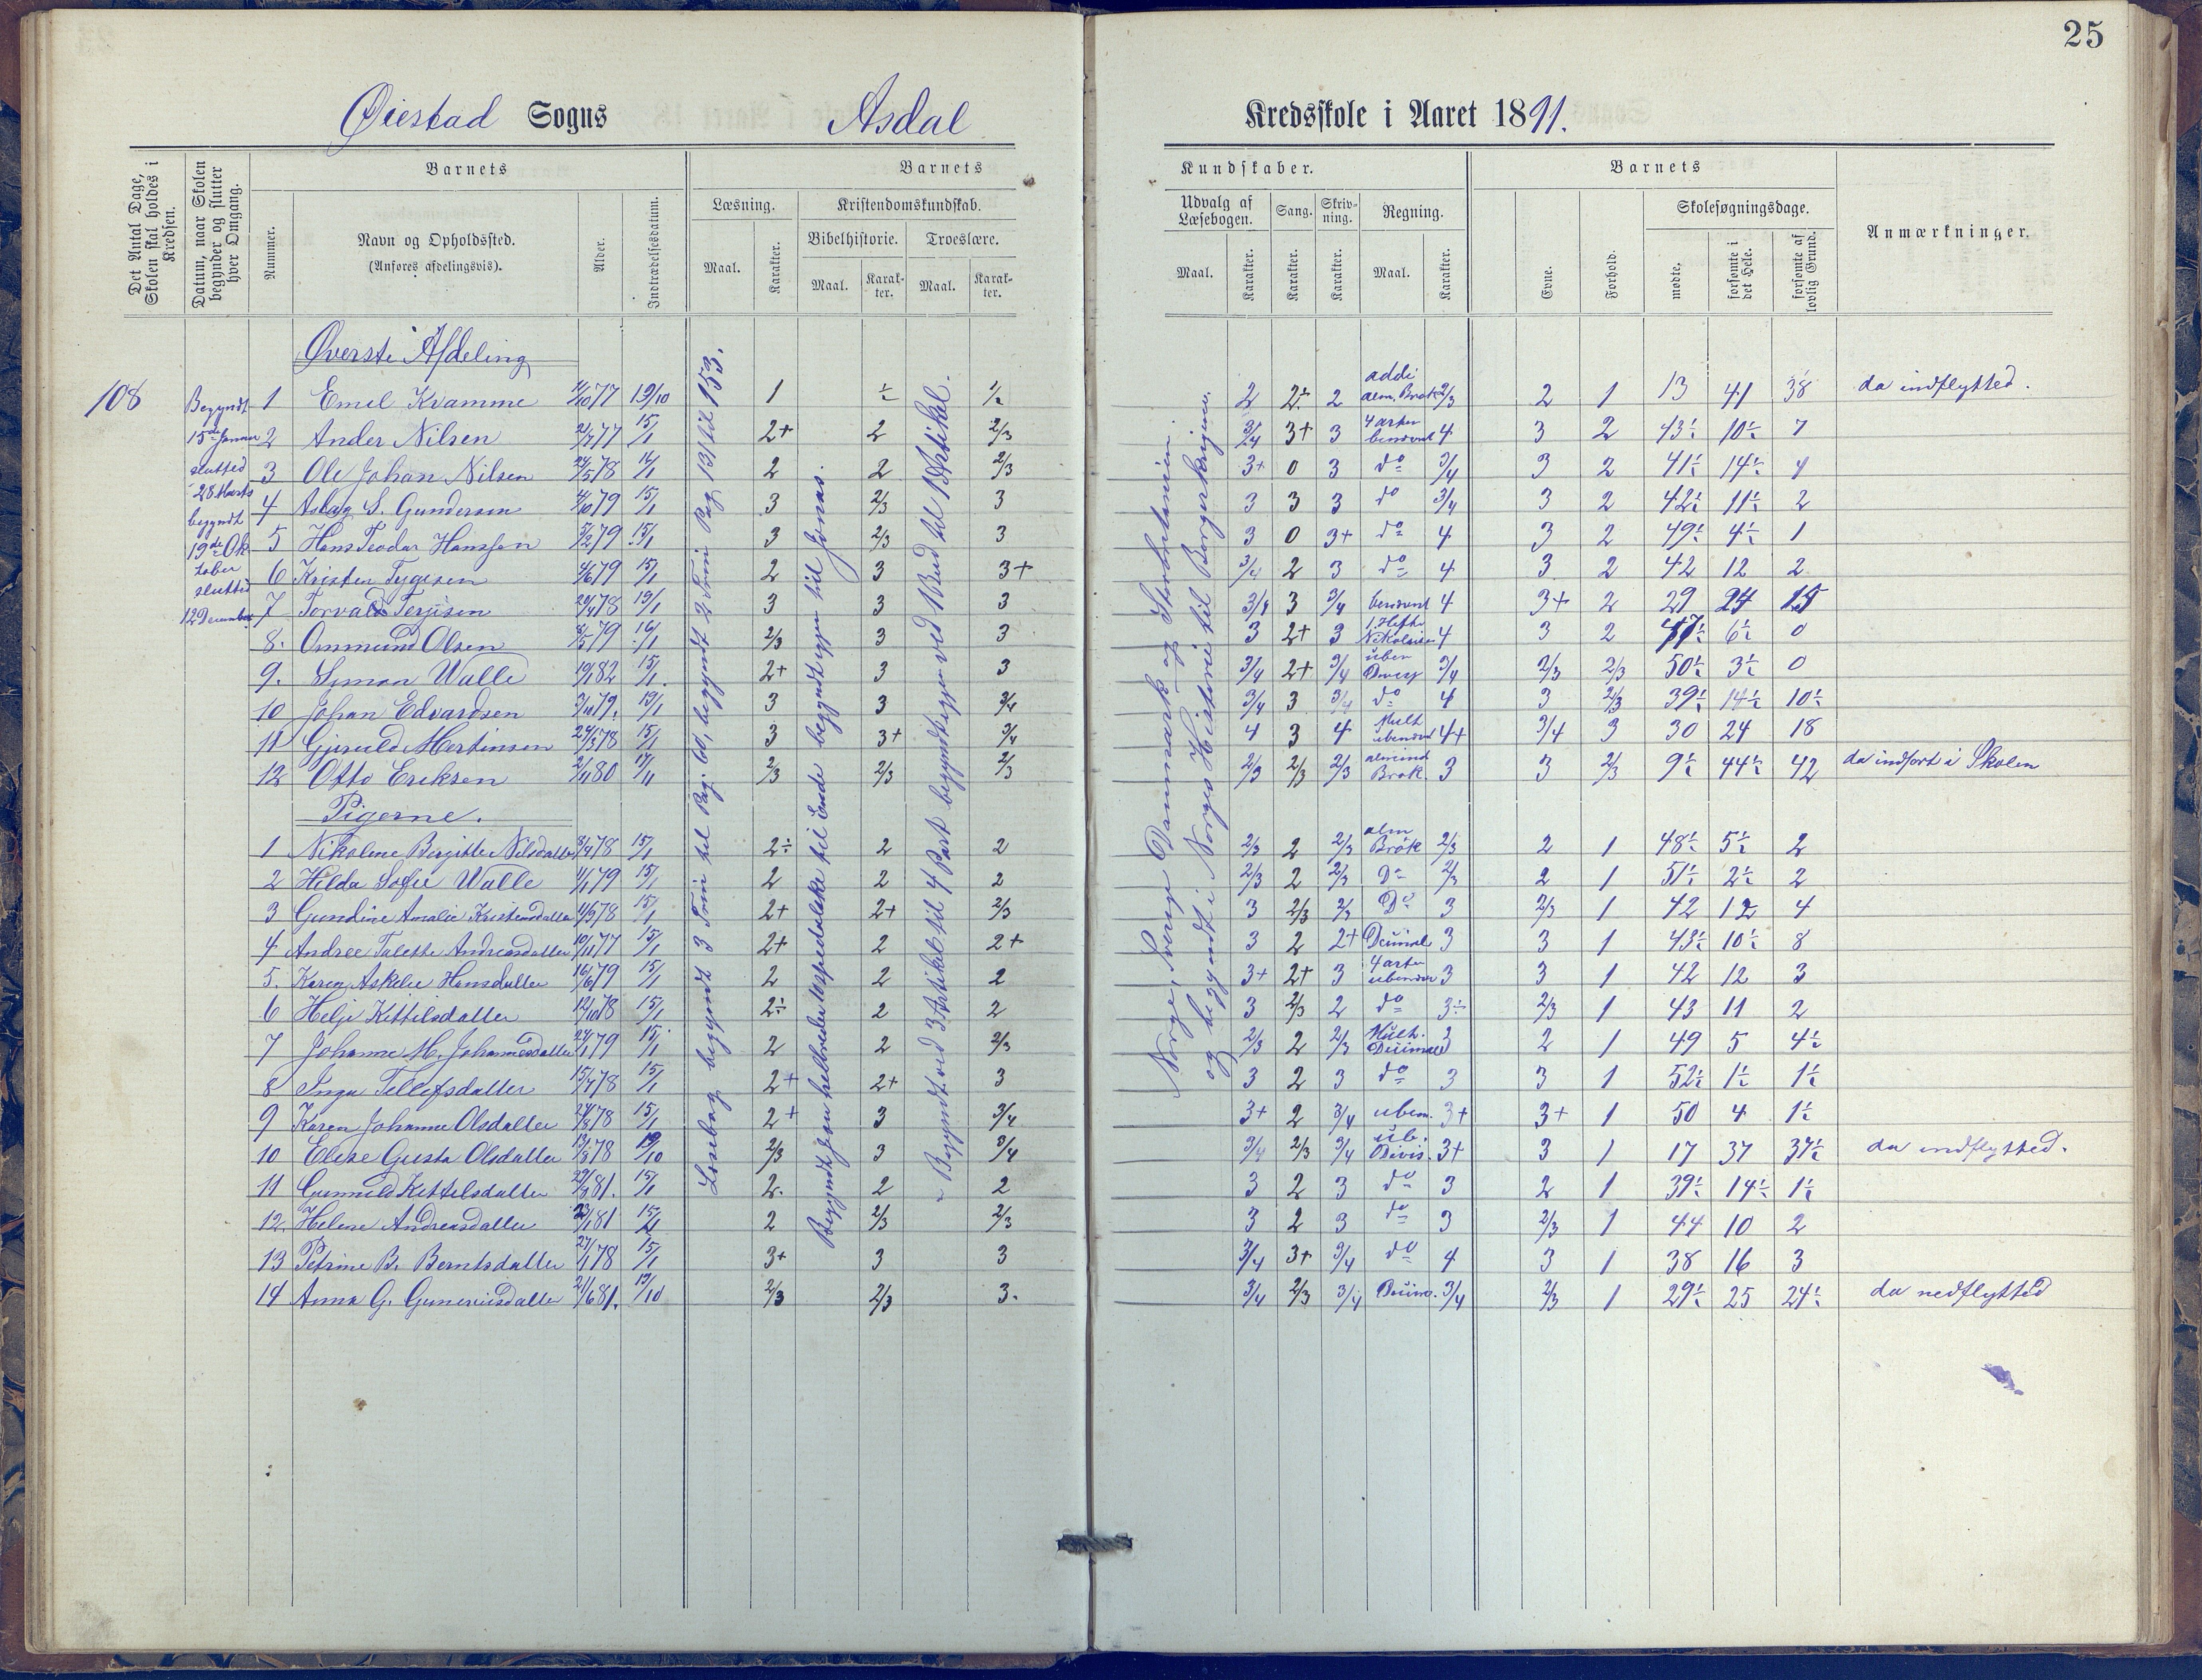 25
Øiestad Sogns Asdal Kredsskole i Aaret 1891.
Det Antal Dage, Skolen skal holdes i Kredsen.
Datum, naar Skolen begynder og slutter hver Omgang.
Nummer.
Barnets
Navn og Opholdssted.
(Anføres afdelingsvis).
Alder.
Indtrædelsesdatum.
Barnets Kundskaber.
Læsning.
Maal. Karakter.
Kristendomskundskab.
Bibelhistorie. Troeslære.
Maal. Karakter. Maal. Karakter.
Udvalg af Læsebogen.
Maal. Karakter.
Sang. Karakter.
Skrivning. Karakter.
Regning.
Maal. Karakter.
Barnets
Evne. Forhold.
Skolesøgningsdage.
mødte. forsømte i det Hele. forsømte af lovlig Grund.
Anmærkninger.
108
Begyndt
15de Januar
slutted
28 Marts
begyndt
19de Ok
tober
sluttid
12 December
Øverste Afdeling
1 Emil Kvamme 77 19/10 1 ÷ 1/2 2 2÷ 2 addi alm. Brøk 2/3 2 1 13 41 38 da indflytted.
2 Ander Nilsen 77 15/1 2+ 2 2/3 3/4 3+ 3 4 arter benævnt 4 3 2 43½ 10½ 7
3 Ole Johan Nilsen 24/5 78 16/1 2 2 2/3 3+ 0 3 do 3/4 3 2 41½ 14½
4 Aslag S. Gundersen 79 15/1 3 2/3 3 3 3 3 do 3/4 3 2 42½ 11½ 2
5 Hans Teodar Hansen 5/2 79 15/1 3 2/3 3 3 0 3+ do 4 3 2 49½ 4½ 1
6 Kristen Tygesen 4/6 79 15/1 2 3 3+ 3/4 2 3 do 4 3 2 42 12 2
7 Torvald Terjisen 20/4 78 19/1 3 3 3 3/4 3 3/4 benævnt 4 3+ 2 29 24 15
8. Ommund Olsen 79 16/1 2/3 3 3 3 2+ 3 1. Hefte 4 3 2 47½ 6½ 0
9. Simon Walle 82 15/1 2+ 3 3 3/4 2+ 3/4 uben 3/4 2/3 2/3 50½ 3½ 0
10 Johan Edvardsen 3/10 79. 19/1 3 3 3/4 3/4 3 3/4 do 4 3 2/3 39½ 14½ 10½
11 Gjeruld Mertinsen 78 15/1 3 3+ 3/4 4 3 4 Mult ubenævnt 4+ 3/4 3 30 24 18
12 Otto Eriksen 2/11 80 17/11 2/3 2/3 2/3 2/3 2/3 2/3 almind Brøk. 3 3 2/3 9½ 44½ 42 da indført i Skolen
Pigerne.
1 Nikoline Birgitte Nilsdatter 78 15/1 2÷ 2 2 2/3 2 2/3 alm Brøk 2/3 2 1 48½ 5½ 2
2 Hilda Sofie Walle 79 15/1 2 2 2 2/3 2 2/3 Do 2/3 2 1 51½ 2½ 2
3 Gundine Amalie Kristensdatter 78 15/1 2+ 2+ 2/3 3 2/3 2/3 Do 3 2/3 1 42 12 4
4 Andree Talette Andreasdatter 10/11 77 15/1 2+ 2 2+ 3 2 2+ Decimal 3 3 1 43½ 10½ 8
5. Karen Askelie Hansdatter 16/6 79 15/1 2 2 2 3+ 2+ 3 4 arter ubenævn 3 3 1 42 12 3
6 Helje Kittilsdatter 12/10 78 15/1 2÷ 2 2 3 2/3 2 do 3÷ 2/3 1 43 11 2
7 Johanne M. Johannesdatter 79 15/1 2 2 2/3 2/3 2 2/3 Mult. Decimal 3 2 1 49 5 4½
8 Inga Tellefsdatter 78 15/1 2+ 2+ 3 3 2 3 do 3 3 1 52½ 1½ 1½
9 Karen Johanne Olsdatter 78 15/1 2+ 3 3/4 3+ 2 3/4 uben. 3+ 3+ 1 50 4 1½
10 Elise Gusta Olsdatter 78 19/10 2/3 3 3/4 3/4 2/3 3/4 ub. Divis. 3+ 3 1 17 37 37½ da indflytted.
11 Gunnild Kittelsdatter 81. 15/1 2. 2 2 3 2 3 do 3 2 1 39½ 14½ 1½
12 Helene Andreasdatter 81 15/1 2 2/3 2/3 3 2 3 do 3 2/3 1 44 10 2
13 Petrine B. Berntsdatter 27/1 78 15/1 3+ 3 3 3/4 3+ 3/4 do 4 3 1 38 16 3
14 Anna G. Guneriusdatter 21/6 81. 19/10 2/3 2/3 3. 3/4 2/3 3/4 3/4 2/3 1 29½ 25 24½ da nedflytted
Læsebog begyndt 3 Trin til Pag. 60, begyndt 2 Trin Pag. 131 til 153.
Begyndt Jon helbreder til Ende begyndt igjen til Jonas.
Begyndt ved 3 Artikel til 4 Part begyndt igjen ved 1 Bud til 1 Artikel.
Norge, Sverige Danmark og Storbritanien.
og begyndt i Norges Historie til Borgerkrigene.